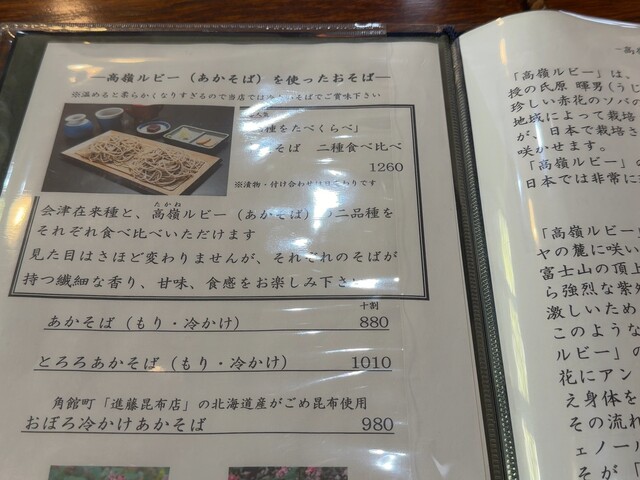 ―高嶺ルビー（あかそば）を使ったおそば―
※温めると柔らかくなりすぎるので当店では
そばでご賞味下さい
種をたべくらべ」
そば 二種食べ比べ
1260
※漬物・付け合わせは
ります
たかね
会津在来種と、高嶺ルビー（あかそば）の二品種を
それぞれ食べ比べいただけます
見た目はさほど変わりませんが、それぞれのそばが
持つ繊細な香り、甘味、食感をお楽しみ下さい
十割
あかそば（もり・冷かけ） 880
とろろあかそば（もり・冷かけ） 1010
角館町「進藤昆布店」の北海道産がごめ昆布使用
おぼろ冷かけあかそば 980
「高嶺ルビー」は、
授の氏原 暉男(うじ
珍しい赤花のソバの
地域によって栽培
が、日本で栽培さ
咲かせます。
「高嶺ルビー」
日本では非常に
「高嶺ルビー」
ヤの麓に咲い
富士山の頂上
ら強烈な紫外
激しいため
このような
ルビー」の
花にアン
え身体を
その流れ
ェノール
そが「